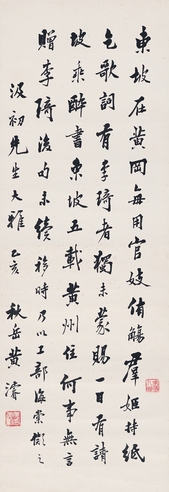 東坡在黄岡每用官妓侑觴羣姬持紙
乞歌詞有李琦者獨未蒙賜一日有請
坡乘醉書東坡五載黄州住何事無言
贈李琦後句未續移時乃以工部海棠儗之
汲初先生大雅 乙亥 秋岳黄濬